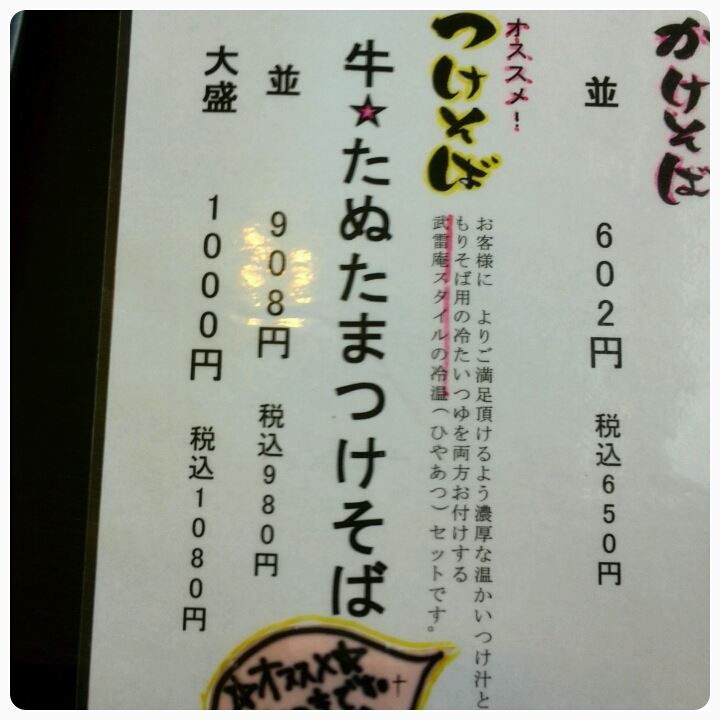 かけそば
並 602円 税込650円
オススメ!
つけそば
お客様に よりご満足頂けるよう濃厚な温かいつけ汁と
もりそば用の冷たいつゆを両方お付けする
武雷庵スタイルの冷温(ひやあつ)セットです。
牛★たぬたまつけそば
並 908円 税込980円
大盛 1000円 税込1080円
☆オススメ☆